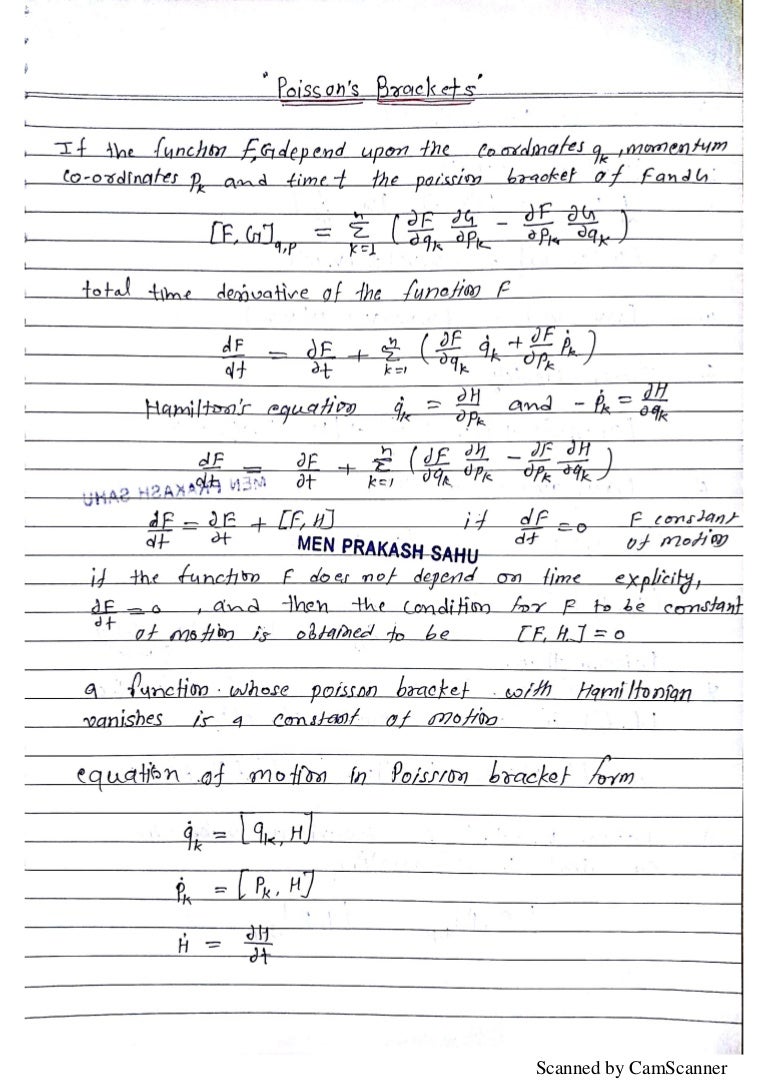 "Poisson's Brackets"
If the function F,G depend upon the coordinates qₖ, momentum
co-ordinates pₖ and time t the poission bracket of F and G.
[F, G]q,p = Σₖ₌₁ⁿ (∂F/∂qₖ ∂G/∂pₖ − ∂F/∂pₖ ∂G/∂qₖ)
total time derivative of the function F
dF/dt = ∂F/∂t + Σₖ₌₁ⁿ (∂F/∂qₖ q̇ₖ + ∂F/∂pₖ ṗₖ)
Hamilton's equation q̇ₖ = ∂H/∂pₖ and − ṗₖ = ∂H/∂qₖ
dF/dt = ∂F/∂t + Σₖ₌₁ⁿ (∂F/∂qₖ ∂H/∂pₖ − ∂F/∂pₖ ∂H/∂qₖ)
MEN PRAKASH SAHU
dF/dt = ∂F/∂t + [F, H] if dF/dt = 0 F constant
of motion
MEN PRAKASH SAHU
if the function F does not depend on time explicity,
∂F/∂t = 0, and then the condition for F to be constant
of motion is obtained to be [F, H] = 0
a function whose poisson bracket with Hamiltonian
vanishes is a constant of motion
equation of motion in Poission bracket form
q̇ₖ = [qₖ, H]
ṗₖ = [Pₖ, H]
Ḣ = ∂H/∂t
Scanned by CamScanner